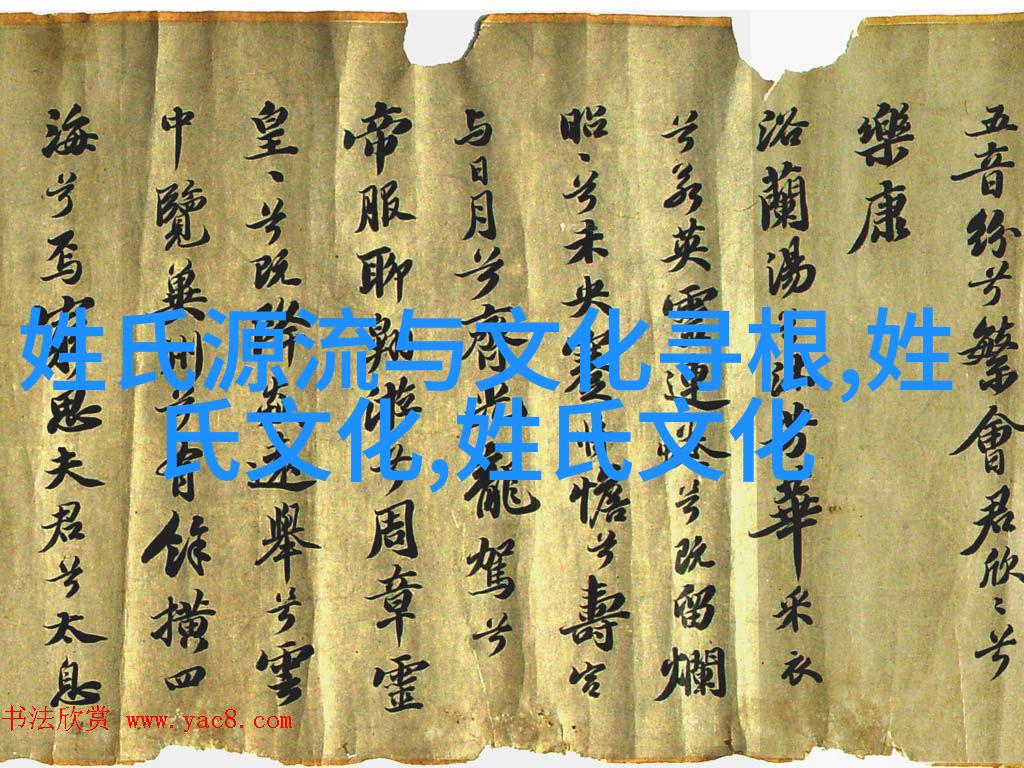 五音纷兮繁會君欣〻兮
樂康
浴蘭湯兮沐芳華采衣
兮若英靈連蜷兮既留爛
昭〻兮未央蹇將憺兮壽宮
与日月兮齊光龍駕兮
帝服聊翱遊兮周章靈
皇〻兮既降猋遠舉兮雲
中覽冀州兮有餘横四
海兮焉窮思夫君兮太息
姓氏源流与文化寻根,姓
氏文化,姓氏文化
书法欣赏 www.yac8.com